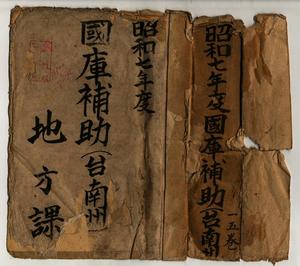 昭和七年度國庫補助(台南州)
一五巻
昭和七年度
國庫補助(台南州)
地方課